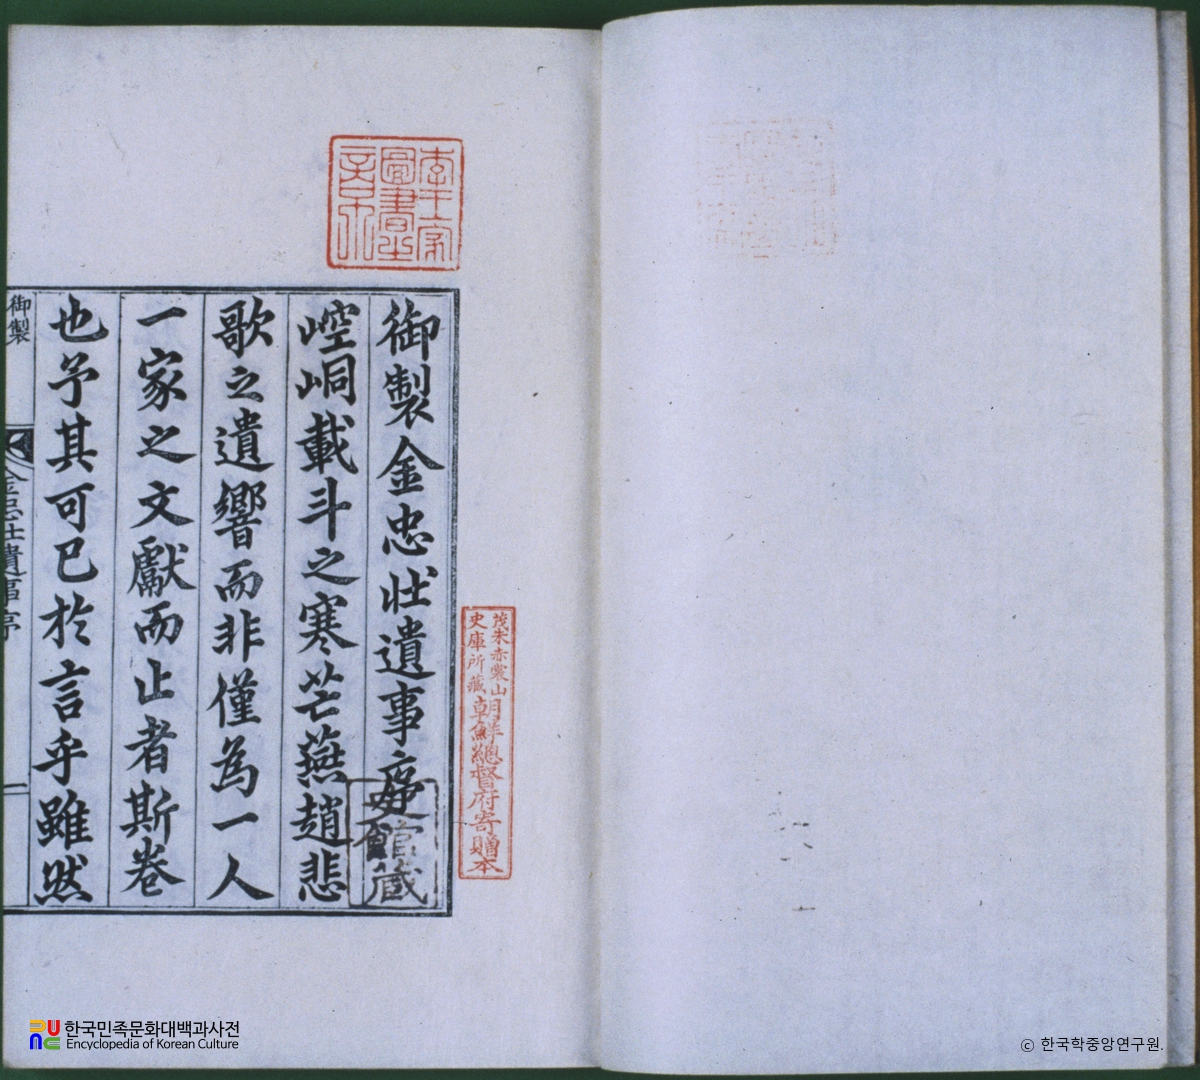 御製金忠壯遺事序
崆峒載斗之寒芒燕趙悲
歌之遺響而非僅為一人
一家之文獻而止者斯卷
也予其可已於言乎雖然
御製
金忠壯遺事序
一
李王家
圖書之
章
茂朱赤裳山
史庫所藏
朝鮮總督府寄贈本
館藏
한국민족문화대백과사전
Encyclopedia of Korean Culture
ⓒ 한국학중앙연구원.